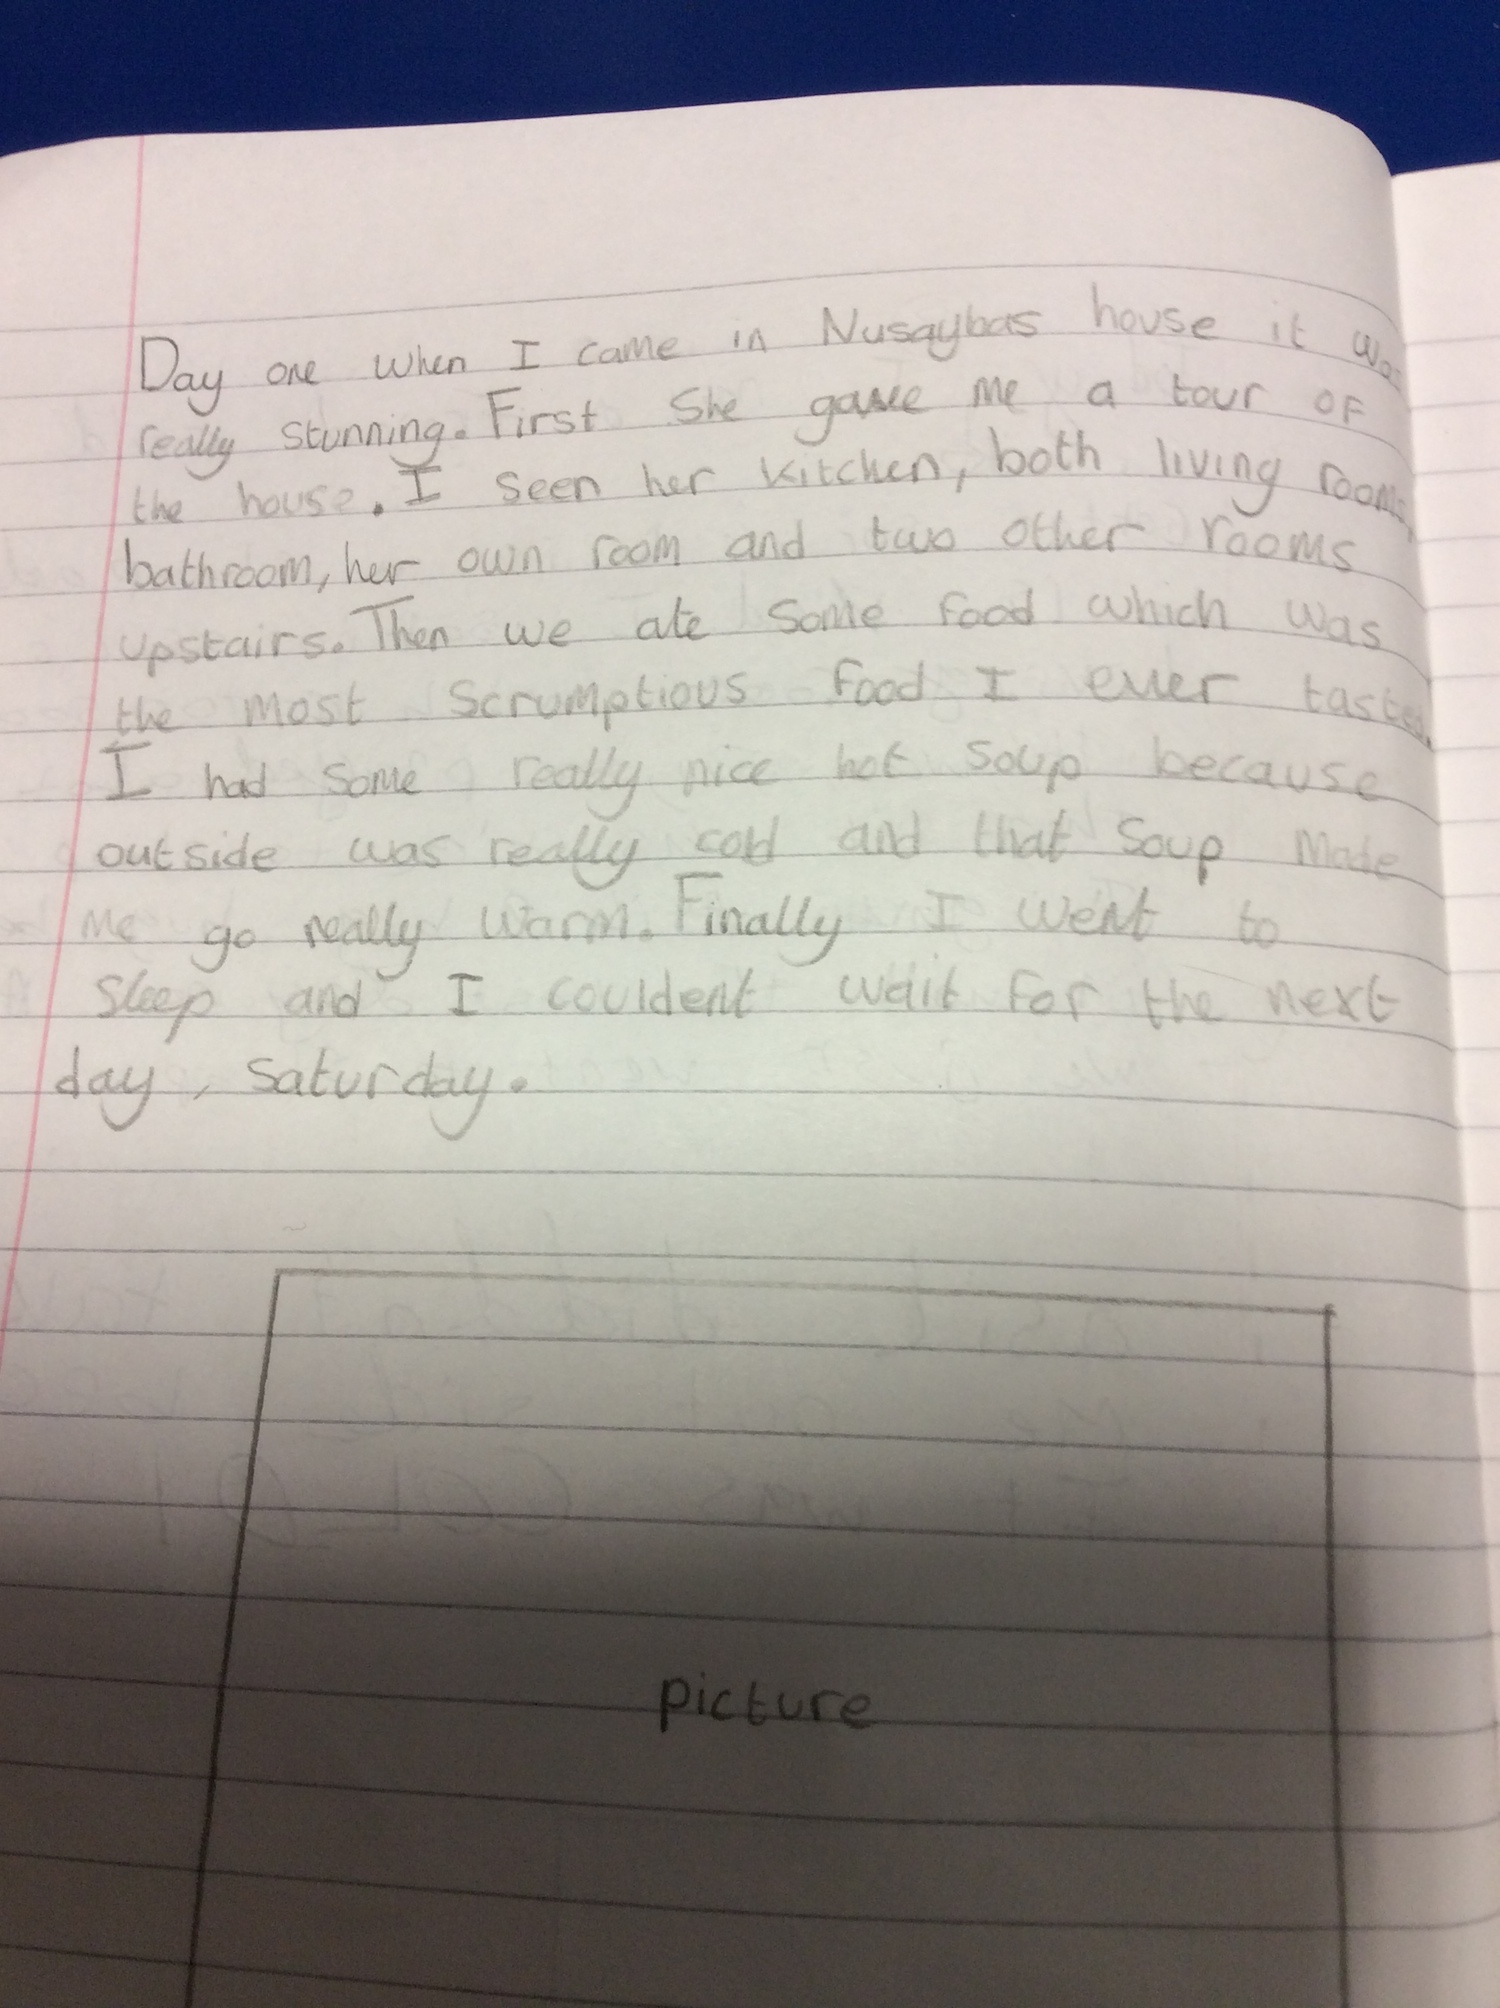 Day one when I came in Nusaybas house it was
really stunning. First She gave me a tour of
the house. I seen her kitchen, both living rooms,
bathroom, her own room and two other rooms
upstairs. Then we ate some food which was
the most scrumptious food I ever tasted.
I had some really nice hot soup because
outside was really cold and that soup made
me go really warm. Finally I went to
sleep and I couldent wait for the next
day, saturday.
picture